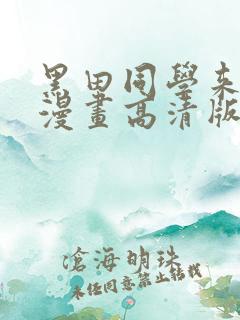 黑田同學来
漫畫高清版
滄海明珠
未經同意禁止轉載